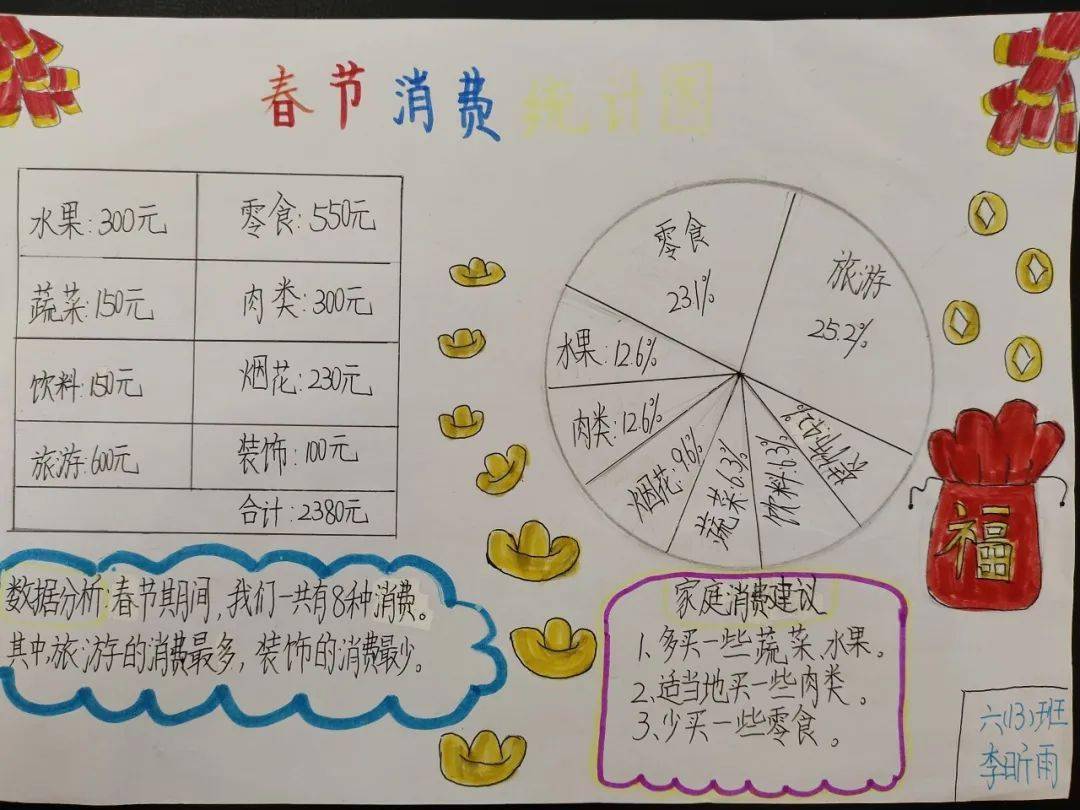 春节消费统计图
水果:300元 零食:550元
蔬菜:150元 肉类:300元
饮料:150元 烟花:230元
旅游:600元 装饰:100元
合计:2380元
零食
23.1%
旅游
25.2%
水果:12.6%
肉类:12.6%
烟花:9.6%
蔬菜:6.3%
饮料:6.3%
装饰:4.2%
福
数据分析:春节期间,我们一共有8种消费。
其中,旅游的消费最多,装饰的消费最少。
家庭消费建议
1、多买一些蔬菜、水果。
2、适当地买一些肉类。
3、少买一些零食。
六(13)班
李昕雨